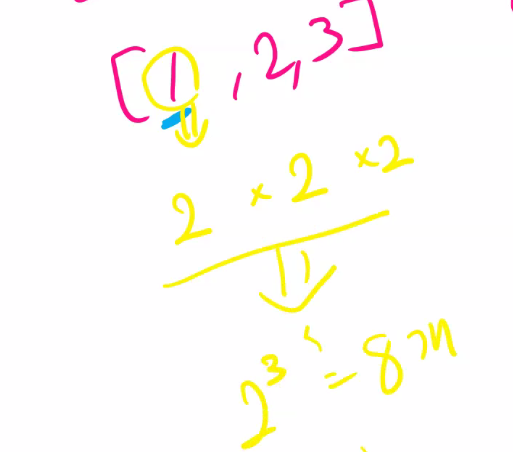 [1, 2, 3]
2 × 2 × 2
2³ = 8